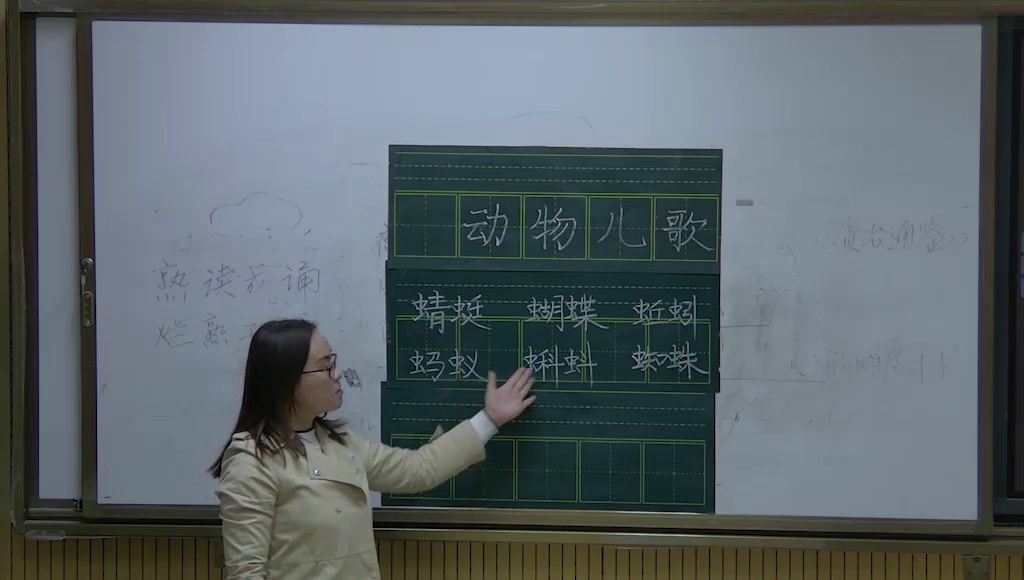 动物儿歌
蜻蜓 蝴蝶 蚯蚓
蚂蚁 蝌蚪 蜘蛛
熟读 诵
烂熟